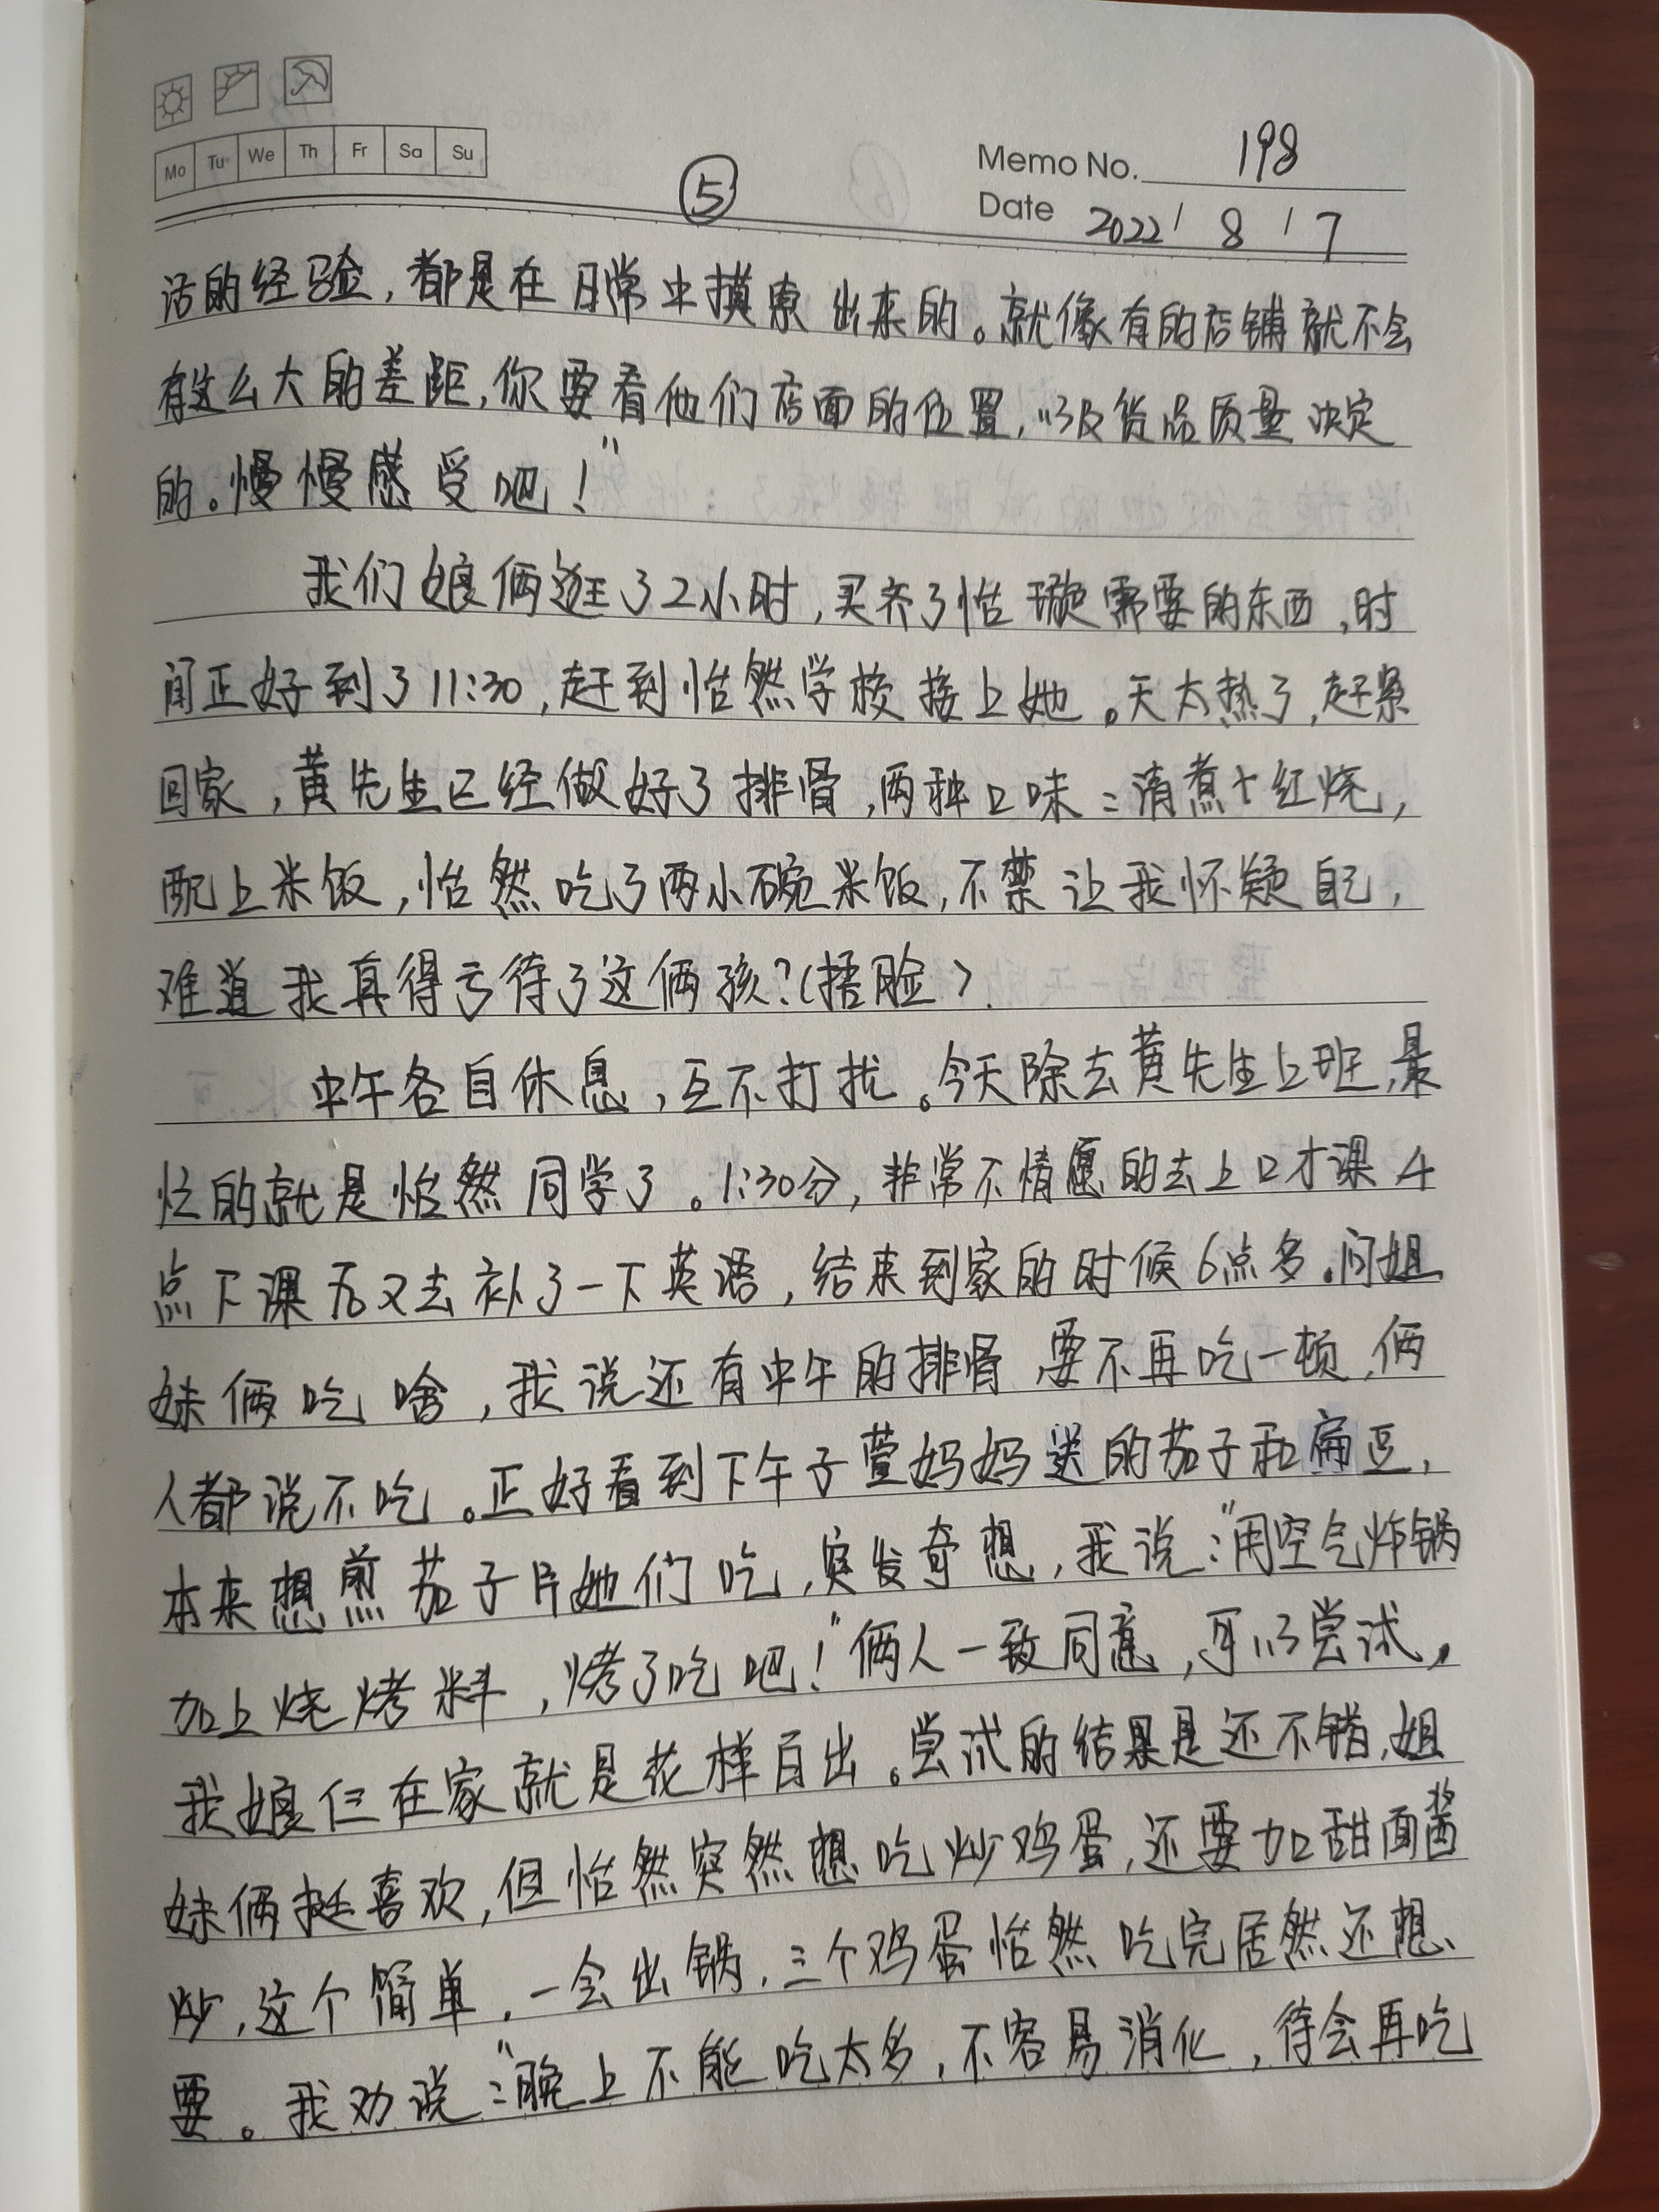 Mo Tu We Th Fr Sa Su
⑤
Memo No. 198
Date 2022/8/7
活的经验,都是在日常中摸索出来的。就像有的店铺就不会
有这么大的差距,你要看他们店面的位置,以及货品质量决定
的。慢慢感受吧!”
我们娘俩逛了2小时,买齐了怡璇需要的东西,时
间正好到了11:30,赶到怡然学校接上她。天太热了,赶紧
回家,黄先生已经做好了排骨,两种口味:清煮+红烧,
配上米饭,怡然吃了两小碗米饭,不禁让我怀疑自己,
难道我真得亏待了这俩孩?(捂脸).
中午各自休息,互不打扰。今天除去黄先生上班,最
忙的就是怡然同学了。1:30分,非常不情愿的去上口才课4
点下课后又去补了一下英语,结束到家的时候6点多.问姐
妹俩吃啥,我说还有中午的排骨要不再吃一顿,俩
人都说不吃。正好看到下午子萱妈妈送的茄子和扁豆,
本来想煎茄子片她们吃,突发奇想,我说:“用空气炸锅
加上烧烤料,烤了吃吧!”俩人一致同意,可以尝试,
我娘仨在家就是花样百出。尝试的结果是还不错,姐
妹俩挺喜欢,但怡然突然想吃炒鸡蛋,还要加甜面酱
炒,这个简单,一会出锅,三个鸡蛋怡然吃完居然还想
要。我劝说:“晚上不能吃太多,不容易消化,待会再吃